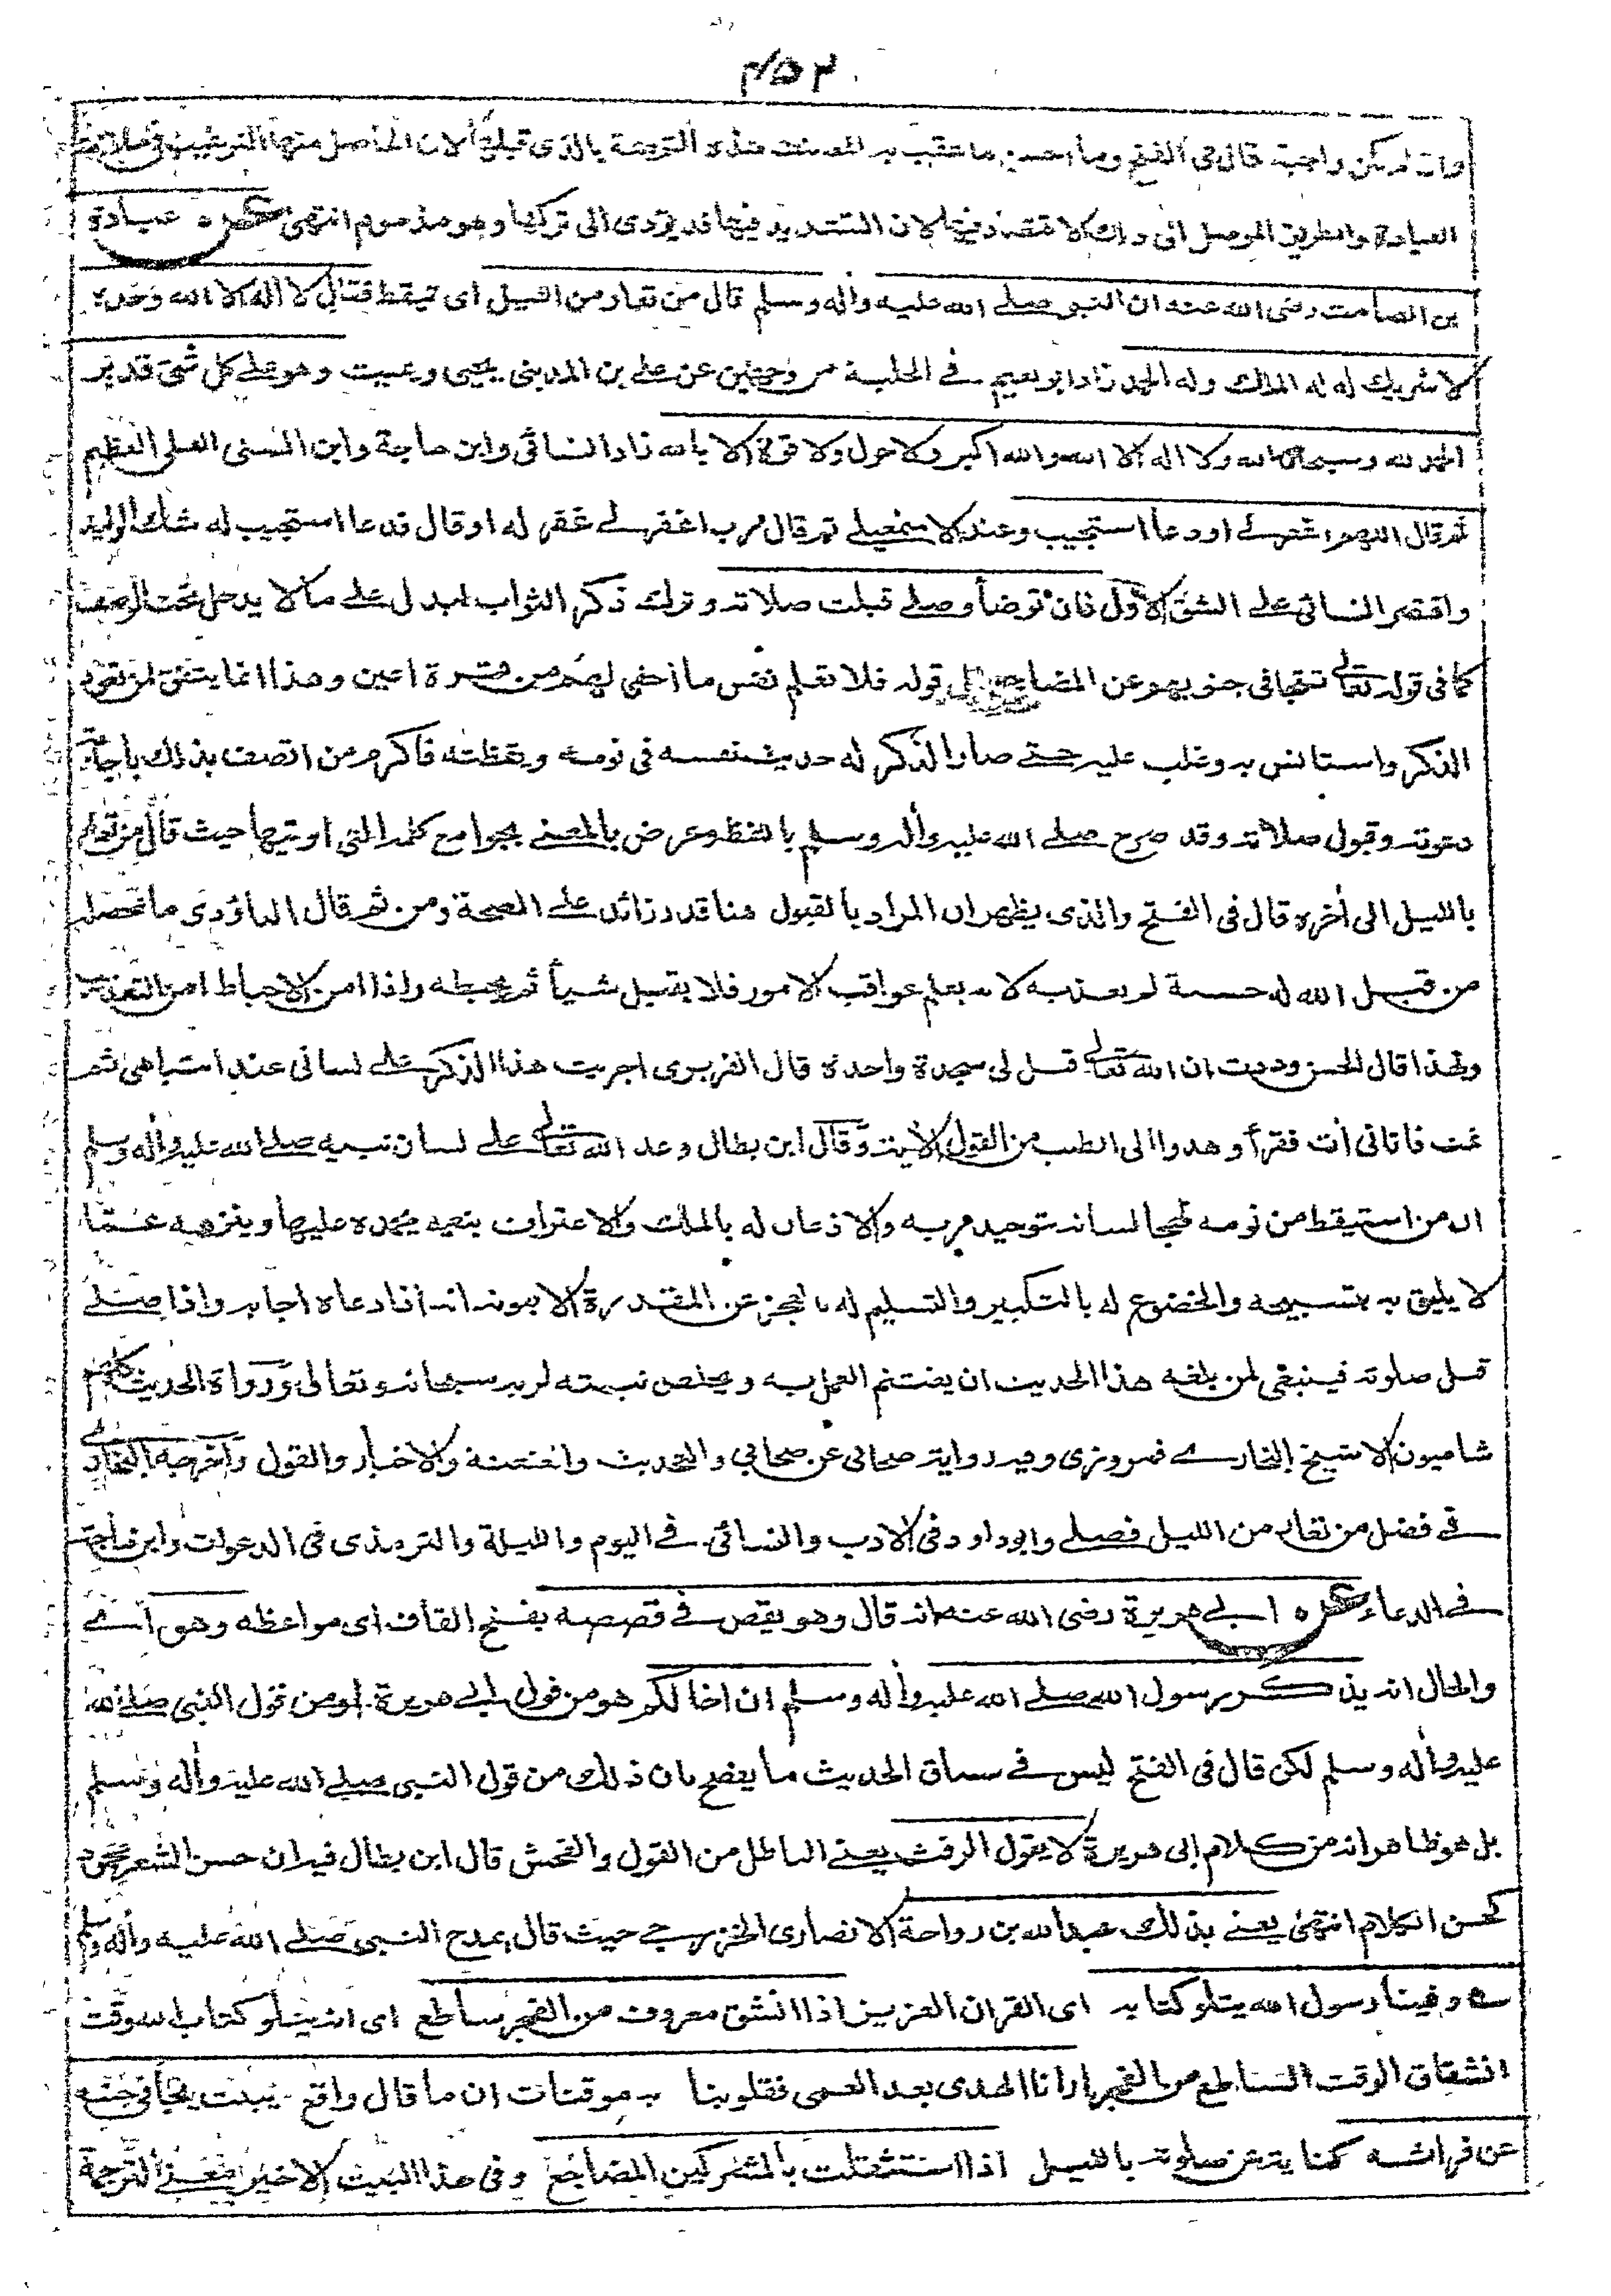 ٤٥٣
وان لم يكن واجبة قال في الفتح وما احسن ما عقب به المصنف هذه الترجمة بالذي قبلها لان الحاصل منها الترغيب في ملازمة
العبادة والطريق الموصل الى ذلك الاقتصاد فيها لان التشديد فيها قد يؤدى الى تركها وهو مذموم انتهى عن عبادة
بن الصامت رضى الله عنه ان النبي صلے الله عليه واٰله وسلم قال من تعار من الليل اى تيقظ فقال لا اله الا الله وحده
لا شريك له له الملك وله الحمد زاد ابو نعيم في الحلية من وجهين عن علے بن المدينى يحيى ويميت وهو علے كل شئ قدير
الحمد لله وسبحان الله ولا اله الا الله والله اكبر ولا حول ولا قوة الا بالله زاد النسائى وابن ماجة وابن السنى العلى العظيم
ثم قال اللهم اغفر لے او دعا استجيب وعند الاسمعيلے ثم قال رب اغفر لے غفر له او قال فدعا استجيب له شك الوليد
واقتصر النسائى علے الشق الاول فان توضأ وصلے قبلت صلاته وترك ذكر الثواب ليدل علے ما لا يدخل تحت الوصف
كما في قوله تعالى تتجافى جنوبهم عن المضاجع الى قوله فلا تعلم نفس ما اخفى لهم من قرة اعين وهذا انما يتفق لمن تعود
الذكر واستانس به وغلب عليه حتے صار الذكر له حديث نفسه في نومه ويقظته فاكرم من اتصف بذلك باجابة
دعوته وقبول صلاته وقد صرح صلے الله عليه واٰله وسلم باللفظ وعرض بالمعنے بجوامع كلمه التي اوتيها حيث قال من تعار
بالليل الى اٰخره قال في الفتح والذى يظهر ان المراد بالقبول هنا قدر زائد علے الصحة ومن ثم قال الداؤدى ما محصله
من قبل الله له حسنة لم يعذبه لانه يعلم عواقب الامور فلا يقبل شيأ ثم يحبطه واذا امن الاحباط امن التعذيب
ولهذا قال الحسن وددت ان الله تعالى قبل لى سجدة واحدة قال الفربرى اجريت هذا الذكر علے لسانى عند انتباهى ثم
نمت فاتانى اٰت فقرأ وهدوا الى الطيب من القول الاية وقال ابن بطال وعد الله تعالى على لسان نبيه صلے الله عليه واٰله وسلم
ان من استيقظ من نومه لهجا لسانه بتوحيد ربه والاذعان له بالملك والاعتراف بنعمه يحمده عليها وينزهه عما
لا يليق به بتسبيحه والخضوع له بالتكبير والتسليم له بالعجز عن المقدرة الا بعونه انه اذا دعاه اجابه واذا صلے
قبل صلوته فينبغى لمن بلغه هذا الحديث ان يغتنم العمل به ويخلص نيته لربه سبحانه وتعالى ورواة الحديث كلهم
شاميون الا شيخ البخارے فمروزى وفيه رواية صحابى عن صحابي والتحديث والعنعنة والاخبار والقول واخرجه البخارے
في فضل من تعار من الليل فصلے وابو داود في الادب والنسائى في اليوم والليلة والترمذى في الدعوات وابن ماجة
في الدعاء عن ابے هريرة رضى الله عنه انه قال وهو يقص في قصصه بفتح القاف اى مواعظه وهو اے
والحال انه يذكر رسول الله صلے الله عليه واٰله وسلم ان اخا لكم هو من قول ابے هريرة او من قول النبي صلے الله
عليه واٰله وسلم لكن قال في الفتح ليس في سياق الحديث ما يفصح بان ذلك من قول النبي صلے الله عليه واٰله وسلم
بل هو ظاهر انه من كلام ابى هريرة لا يقول الرفث يعنے الباطل من القول والفحش قال ابن بطال فيه ان حسن الشعر محمود
كحسن الكلام انتهى يعنے بذلك عبد الله بن رواحة الانصارى الخزرجے حيث قال يمدح النبي صلے الله عليه واٰله وسلم
وفينا رسول الله يتلو كتابه اى القراٰن العزيز اذا انشق معروف من الفجر ساطع اى انه يتلو كتاب الله وقت
انشقاق الوقت الساطع من الفجر ارانا الهدى بعد العمى فقلوبنا به موقنات ان ما قال واقع يبيت يجافى جنبه
عن فراشه كناية عن صلوته بالليل اذا استثقلت بالمشركين المضاجع وفى هذا البيت الاخير معنے الترجمة